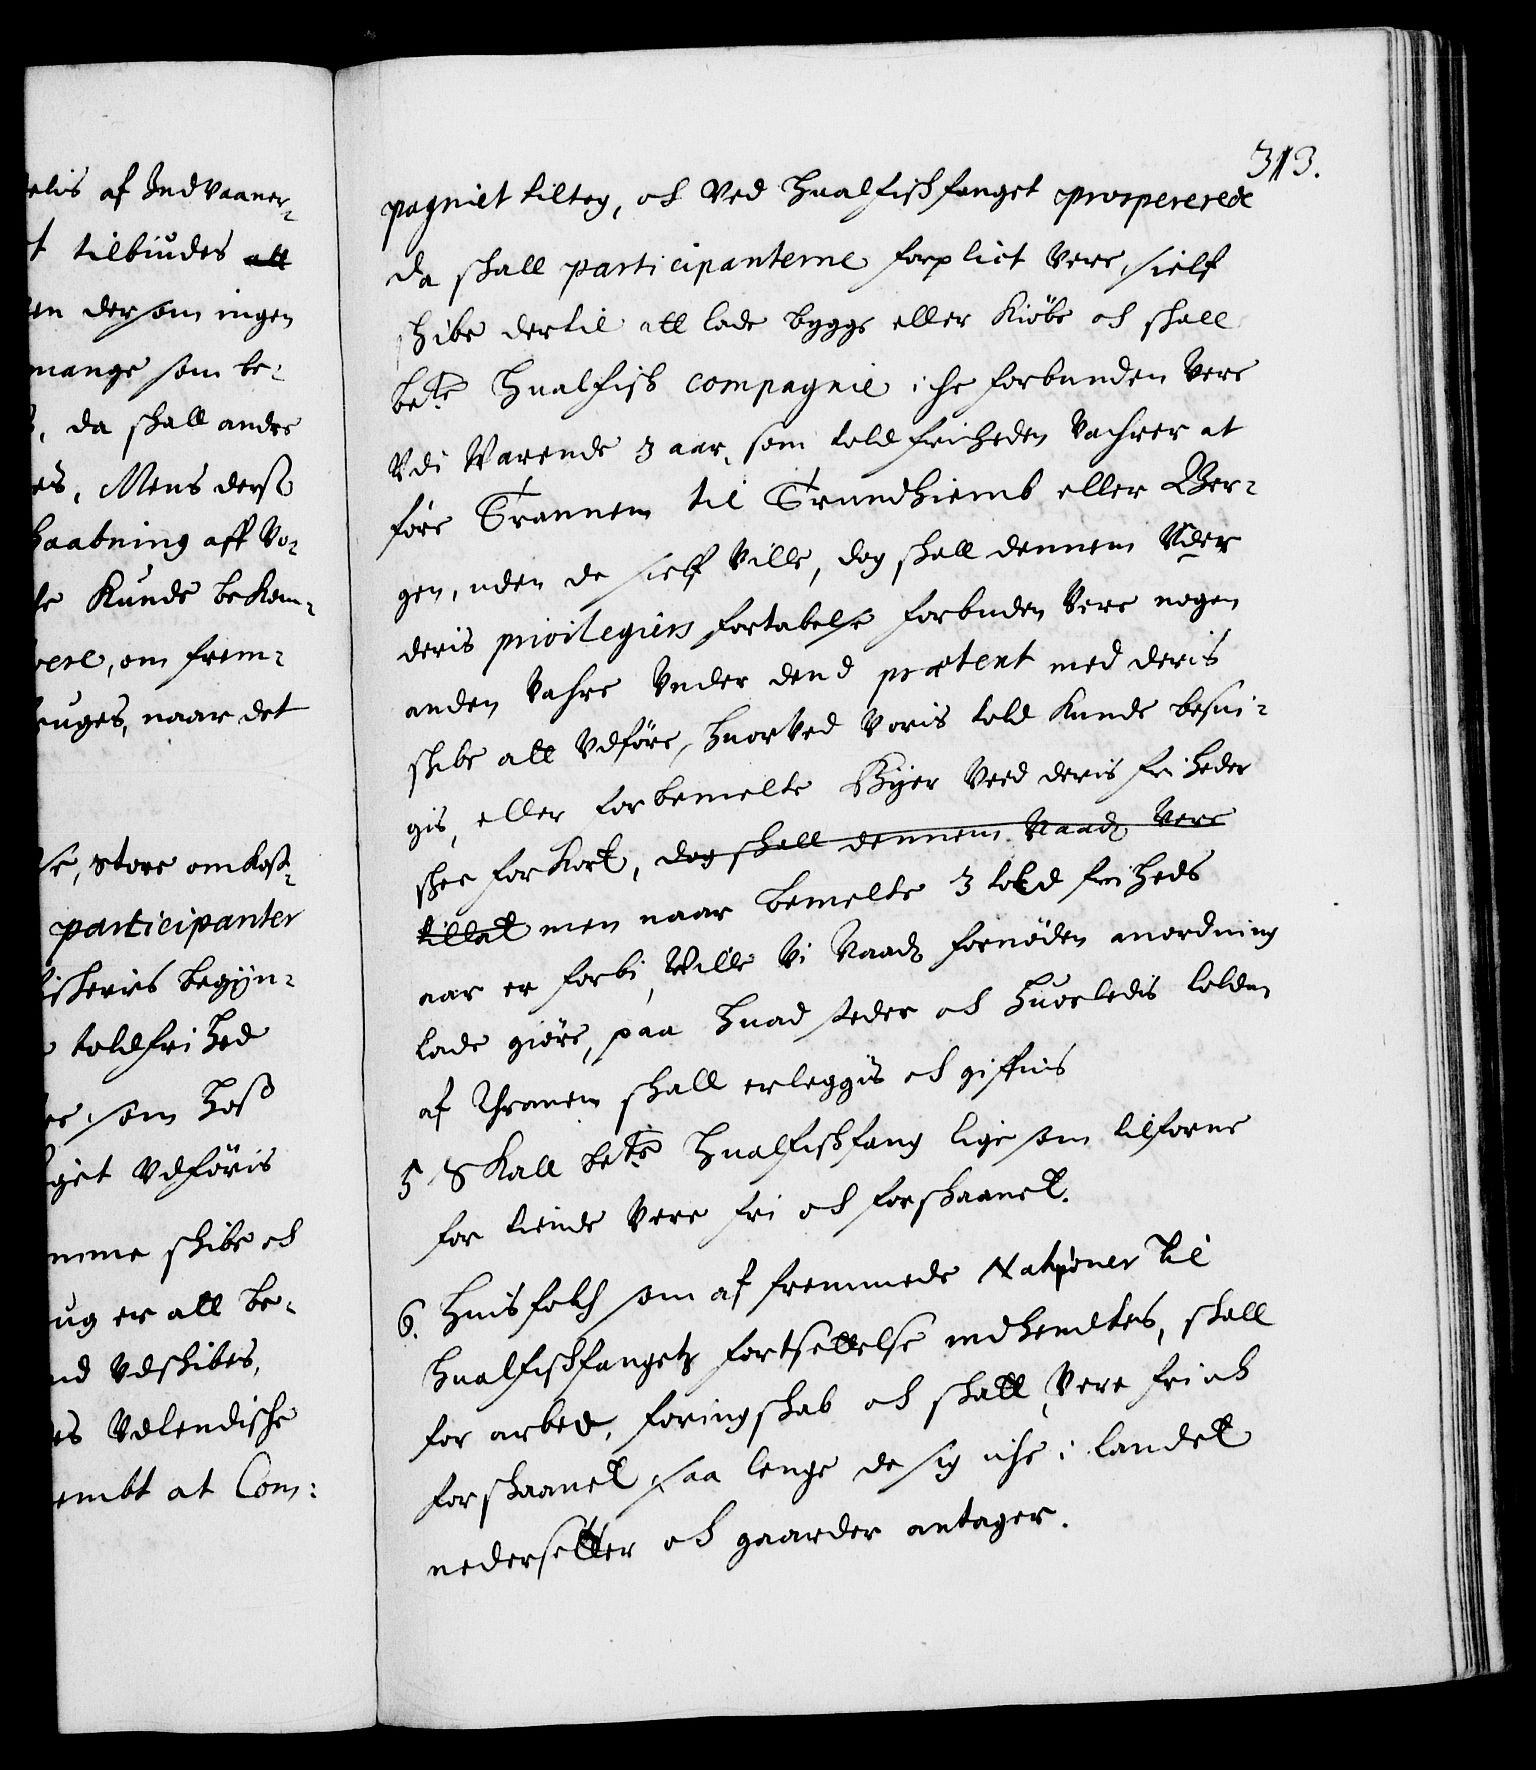 elis af Indvaaner-
t tilbiudes att
en dersom ingen
mange som be-
, da skall andre
es, Mens derso
haabning aff vo-
le Kunde bekom-
vere, om frem-
ruges, naar det
se, store omkost-
participanter
iskeris begyn-
toldfrihed
er, som hoß
get udföris
mme skibe och
ug er att be-
nd udskibes,
es udlendische
embt at Com:
313.
pagniet tiltog, och ved Hualfiskfanget prospererede
da skall participanterne forplict vere, sielf
skibe dertil att lade bygge eller kiöbe och skall
bete Hualfisk compagnie iche forbunden vere
Udi Warende 3 aar, som toldfriheden vahrer at
före Trannen til Trundhiemb eller Ber-
gen, uden de sielf ville, dog skall dennem Under
deris privilegiers fortabelse forbuden vere nogen
anden vahre under dend prætext med deris
skibe att udföre, huorved voris told kunde besui-
gis, eller forbemelte Byer veed deris friheder
skee forkort, dog skall dennem Naadt vere
tillat men naar bemelte 3 told friheds
aar er forbi, Wille vi Naadt fornöden anordning
lade giöre, paa huad steder och huorledis tolden
af Thranen skall erleggis och giffuis
5 Skall bete Hualfiskfang lige som tilforne
for tiende vere fri och forskaanet.
6. Huis folch som af fremmede Nationer til
Hualfischfangetz fortsettelse indhendtes, skall
for arbed, foringskab och skatt, vere fri och
forskaanet saa lenge de sig iche i landet
nedersetter och gaarder antager.